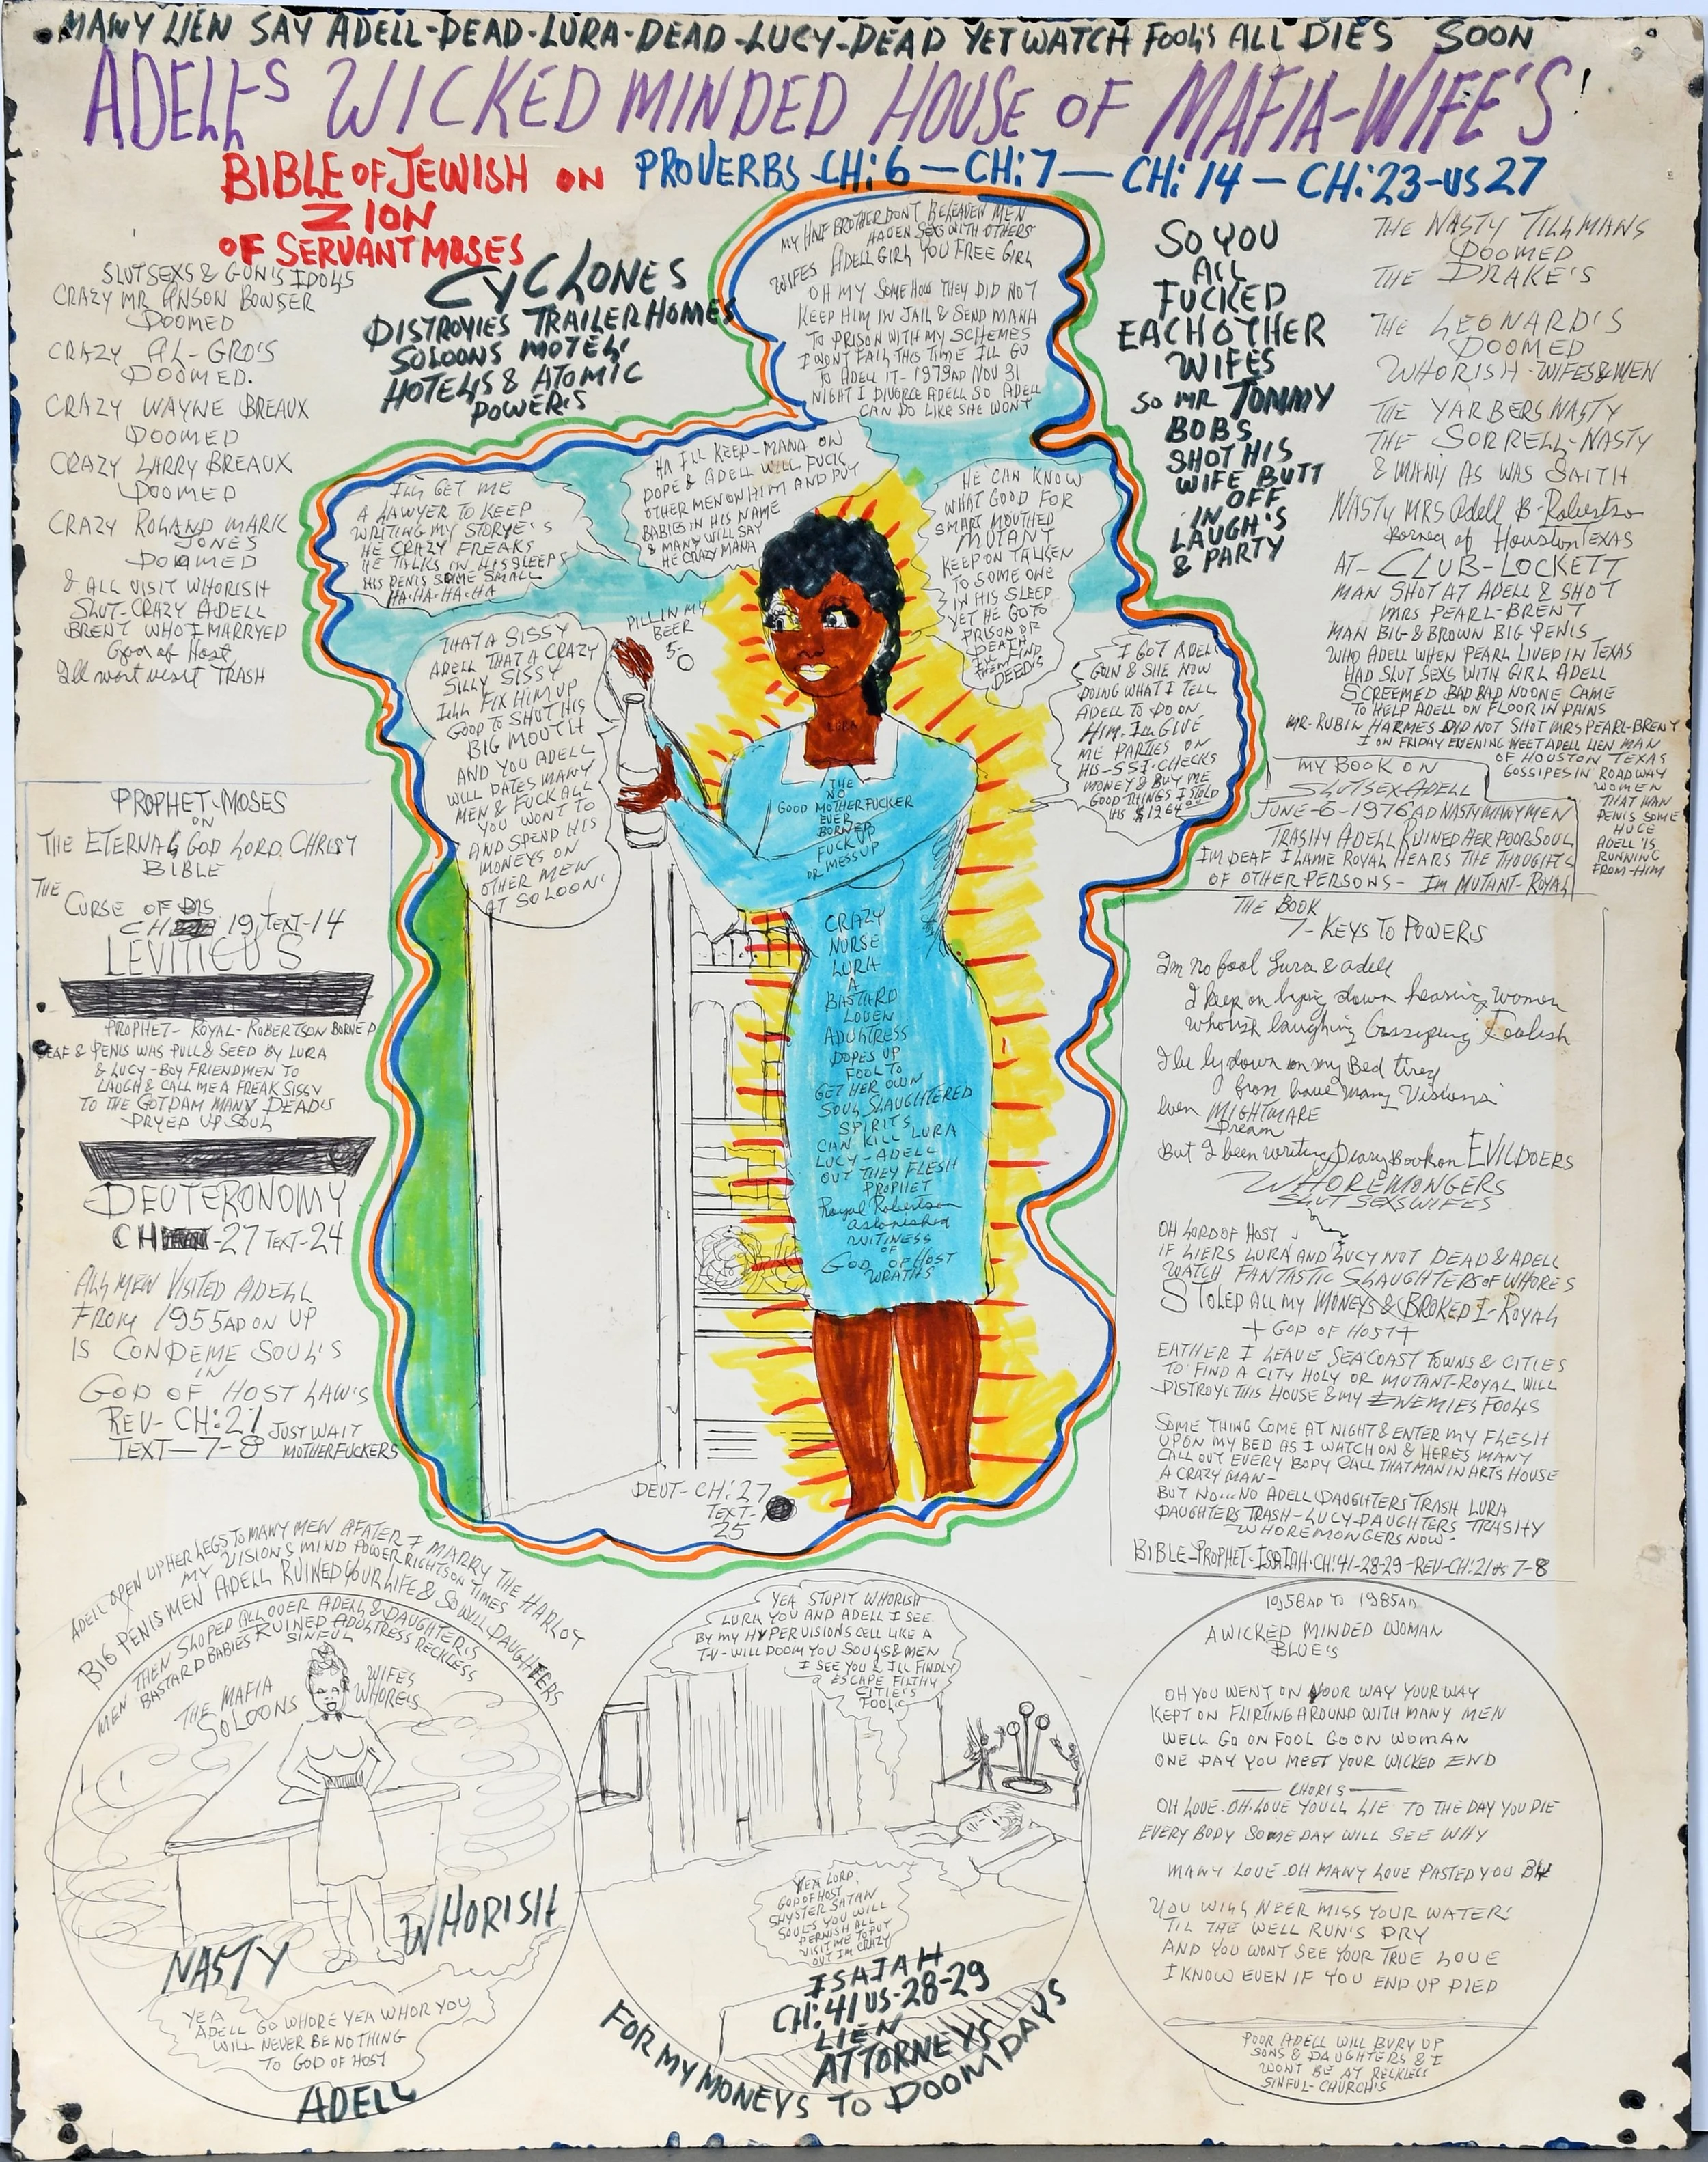 MANY LIEN SAY ADELL-DEAD-LURA-DEAD-LUCY-DEAD YET WATCH FOOL'S ALL DIES SOON
ADELL'S WICKED MINDED HOUSE OF MAFIA-WIFE'S!
BIBLE OF JEWISH ON PROVERBS CH:6 — CH:7 — CH:14 — CH:23-US 27
ZION
OF SERVANT MOSES
SLUT SEXS & GUN'S IDOLS
CRAZY MR ANSON BOWSER
DOOMED
CRAZY AL-GRO'S
DOOMED.
CRAZY WAYNE BREAUX
DOOMED
CRAZY LARRY BREAUX
DOOMED
CRAZY ROLAND MARK
JONES
DOOMED
& ALL VISIT WHORISH
SLUT-CRAZY ADELL
BRENT WHO I MARRYED
God of Host
TRASH
CYCLONES
DISTROYIES TRAILER HOMES
SOLOONS MOTEL'
HOTELS & ATOMIC
POWERS
MY HALF BROTHER DON'T BELEAVEN MEN
HAVEN SEXS WITH OTHERS
WIFES ADELL GIRL YOU FREE GIRL
OH MY SOME HOW THEY DID NOT
KEEP HIM IN JAIL & SEND MANA
TO PRISON WITH MY SCHEMES
I WONT FAIL THIS TIME ILL GO
TO ADELL IT-1979AD NOV 31
NIGHT I DIVORCE ADELL SO ADELL
CAN DO LIKE SHE WONT
SO YOU
ALL
FUCKED
EACH OTHER
WIFES
SO MR TOMMY
BOBS
SHOT HIS
WIFE BUTT
OFF
IN
LAUGH'S
& PARTY
THE NASTY TILLMANS
DOOMED
THE DRAKE'S
THE LEONARD'S
DOOMED
WHORISH-WIFES & MEN
THE YARBERS NASTY
THE SORRELL-NASTY
& MANY AS WAS SAITH
NASTY MRS Adell B-Robertson
Borned of Houston TEXAS
AT-CLUB-LOCKETT
MAN SHOT AT ADELL & SHOT
MRS PEARL-BRENT
MAN BIG & BROWN BIG PENIS
WHO ADELL WHEN PEARL LIVED IN TEXAS
HAD SLUT SEXS WITH GIRL ADELL
SCREEMED BAD BAD NO ONE CAME
TO HELP ADELL ON FLOOR IN PAINS
MR-RUBIN HARMES DID NOT SHOT MRS PEARL-BRENT
I ON FRIDAY EVENING MEET ADELL LIEN MAN
OF HOUSTON TEXAS
GOSSIPES IN ROADWAY
WOMEN
THAT MAN
PENIS SOME
HUGE
ADELL 'IS
RUNNING
FROM-HIM
MY BOOK ON
SLUTSEX ADELL
JUNE-6-1976AD NASTY MANY MEN
TRASHY ADELL RUINED HER POOR SOUL
IM DEAF I LAME ROYAL HEARS THE THOUGHTS
OF OTHER PERSONS- IM MUTANT-ROYAL
ILL GET ME
A LAWYER TO KEEP
WRITING MY STORYE'S
HE CRAZY FREAKS
HE TALKS IN HIS SLEEPS
HIS PENIS SOME SMALL
HA-HA-HA-HA
HA ILL KEEP-MANA ON
DOPE & ADELL WILL-FUCK
OTHER MEN ON HIM AND PUT
BABIES IN HIS NAME
& MANY WILL SAY
HE CRAZY MANA
HE CAN KNOW
WHAT GOOD FOR
SMART MOUTHED
MUTANT
KEEP ON TALKEN
TO SOME ONE
IN HIS SLEEP
YET HE GO TO
PRISON OR
DEATH
DEEDS
THAT A SISSY
ADELL THAT A CRAZY
SILLY SISSY
ILL FIX HIM UP
GOOD TO SHUT HIS
BIG MOUTH
AND YOU ADELL
WILL DATES MANY
MEN & FUCK ALL
YOU WONT TO
AND SPEND HIS
MONEYS ON
OTHER MEN
AT SOLOON'
PILL IN MY
BEER
5-
I GOT ADELL
GOIN & SHE NOW
DOING WHAT I TELL
ADELL TO DO ON
HIM. ILL GIVE
ME PARTIES ON
HIS-SSI-CHECKS
MONEY & BUY ME
GOOD THINGS I STOLD
HIS $1264
LURA
THE
NO
GOOD MOTHERFUCKER
EVER
BORNED
FUCK UP
OR MESS UP
CRAZY
NURSE
LURA
A
BASTARD
LOVEN
ADULTRESS
DOPES UP
FOOL TO
GET HER OWN
SOUL SLAUGHTERED
SPIRITS
CAN KILL LURA
LUCY-ADELL
OUT THEY FLESH
PROPHET
Royal Robertson
astonished
WITINESS
OF
GOD OF HOST
WRATHS
DEUT-CH:27
TEXT-
25
PROPHET-MOSES
ON
THE ETERNAL GOD LORD CHRIST
BIBLE
THE
CURSE OF DIS
CH 19 TEXT-14
LEVITICUS
PROPHET-ROYAL-ROBERTSON BORNED
DEAF & PENIS WAS PULL & SEED BY LURA
& LUCY-BOY FRIENDMEN TO
LAUGH & CALL ME A FREAK SISSY
TO THE GOTDAM MANY DEAD'S
DRYED UP SOUL
DEUTERONOMY
CH -27 TEXT-24
ALL MEN VISITED ADELL
FROM 1955AD ON UP
IS CONDEME SOUL'S
IN
GOD OF HOST LAW'S
REV-CH:21 JUST WAIT
TEXT—7-8 MOTHERFUCKERS
THE BOOK
7-KEYS TO POWERS
Im no fool Lura & adell
I keep on laying down hearing women
whorish laughing Gossiping Foolish
I be ly down on my Bed tired
from have many Visions
even MIGHTMARE
Dream
But I been writing Diary Book on EVILDOERS
WHOREMONGERS
SLUT SEXS WIFES
OH LORD OF HOST
IF LIERS LURA AND LUCY NOT DEAD & ADELL
WATCH FANTASTIC SLAUGHTERS OF WHORES
STOLED ALL MY MONEYS & BROKED I-ROYAL
+ GOD OF HOST +
EATHER I LEAVE SEACOAST TOWNS & CITIES
TO FIND A CITY HOLY OR MUTANT-ROYAL WILL
DISTROYL THIS HOUSE & MY ENEMIES FOOLS
SOME THING COME AT NIGHT & ENTER MY FLESH
UPON MY BED AS I WATCH ON & HERES MANY
CALL OUT EVERY BODY CALL THAT MAN IN ARTS HOUSE
A CRAZY MAN-
BUT NO...NO ADELL DAUGHTERS TRASH LURA
DAUGHTERS TRASH-LUCY-DAUGHTERS TRASHY
WHOREMONGERS NOW-
BIBLE-PROPHET-ISAIAH-CH:41-28-29-REV-CH:21 us 7-8
ADELL OPEN UP HER LEGS TO MANY MEN AFATER I MARRY THE HARLOT
MY VISIONS MIND POWER RIGHTS ON TIMES
BIG PENIS MEN ADELL RUINED YOUR LIFE & SO WILL DAUGHTERS
MEN THEN SLOPED ALL OVER ADELL & DAUGHTER'S
BASTARD BABIES RUINED ADULTRESS RECKLESS
SINFUL
THE MAFIA
SOLOONS
WIFES
WHORE'S
NASTY
WHORISH
YEA
ADELL GO WHORE YEA WHOR YOU
WILL NEVER BE NOTHING
TO GOD OF HOST
ADELL
YEA STUPIT WHORISH
LURA YOU AND ADELL I SEE
BY MY HYPERVISIONS CELL LIKE A
T-V-WILL DOOM YOU SOULS & MEN
I SEE YOU & ILL FINDLY
ESCAPE FILTHY
CITIE'S
FOOLS
YEA LORD
GOD OF HOST
SHYSTER SATAN
SOULS YOU WILL
PERNISH ALL
VISIT ME TO PUT
OUT IM CRAZY
ISAIAH
CH:41 US-28-29
LIEN
ATTORNEYS
FOR MY MONEYS TO DOOM DAYS
1958AD TO 1985AD
A WICKED MINDED WOMAN
BLUE'S
OH YOU WENT ON YOUR WAY YOUR WAY
KEPT ON FLIRTING AROUND WITH MANY MEN
WELL GO ON FOOL GO ON WOMAN
ONE DAY YOU MEET YOUR WICKED END
CHORIS
OH LOVE-OH-LOVE YOULL LIE TO THE DAY YOU DIE
EVERY BODY SOMEDAY WILL SEE WHY
MANY LOVE OH MANY LOVE PASTED YOU BY
YOU WILL NEER MISS YOUR WATER'
TIL THE WELL RUN'S DRY
AND YOU WONT SEE YOUR TRUE LOVE
I KNOW EVEN IF YOU END UP DIED
POOR ADELL WILL BURY UP
SONS & DAUGHTERS & I
WONT BE AT RECKLESS
SINFUL-CHURCH'S